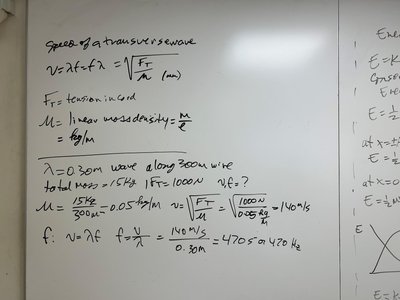 Speed of a transverse wave
v = λf = fλ = √(F_T/μ) (mu)
F_T = tension in cord
μ = linear mass density = m/ℓ
= kg/m
λ = 0.30m wave along 300m wire
total mass = 15kg, F_T = 1000N v, f = ?
μ = 15kg/300m = 0.05 kg/m v = √(F_T/μ) = √(1000N/0.05 kg/m) = 140 m/s
f: v = λf f = v/λ = 140 m/s / 0.30m = 470 s or 470 Hz
E = K
Ene
E = 1/2
at x = ±
E = 1/2
at x = 0
E